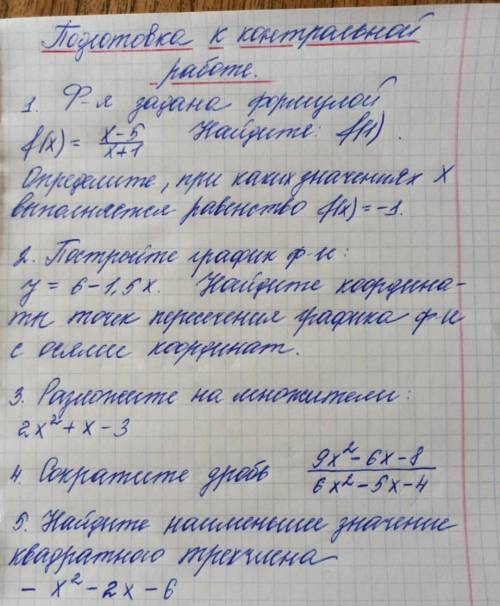 Подготовка к контрольной
работе.
1. Ф-я задана формулой
f(x) = \frac{x-5}{x+1} Найдите: f(1).
Определите, при каких значениях x
выполняется равенство f(x) = -1.
2. Постройте график ф-и:
y = 6 - 1,5x. Найдите координа-
ты точек пересечения графика ф-и
с осями координат.
3. Разложите на множители:
2x² + x - 3
4. Сократите дробь \frac{9x²-6x-8}{6x²-5x-4}
5. Найдите наименьшее значение
квадратного трехчлена
- x² - 2x - 6